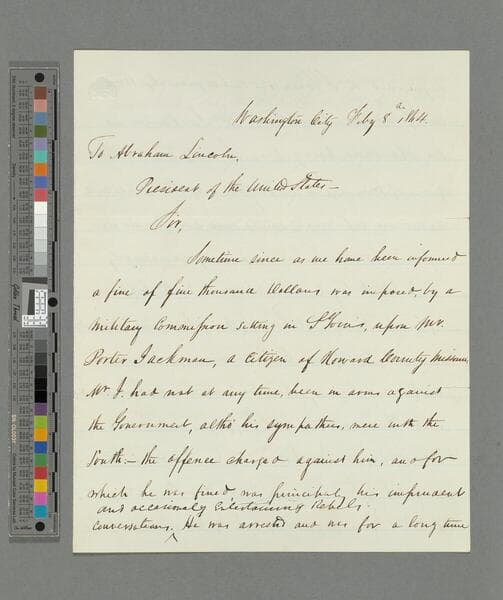 Washington City Feby 8th 1864.
To Abraham Lincoln,
President of the United States —
Sir,
Sometime since as we have been informed
a fine of five thousand dollars was imposed, by a
Military Commission sitting in St Louis, upon Mr.
Porter Jackman, a citizen of Howard County Missouri,
Mr. J. had not at any time, been in arms against
the Government, altho' his sympathies, were with the
South; — the offence charged against him, and for
which he was fined, was principally his imprudent
and occasionally Entertaining Rebels.
Conversations. ^ He was arrested and was for a long time